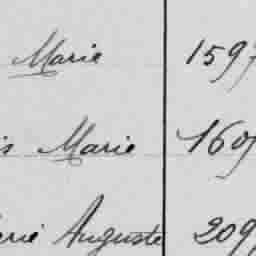 Marie 1597
Marie 1609
Auguste 209